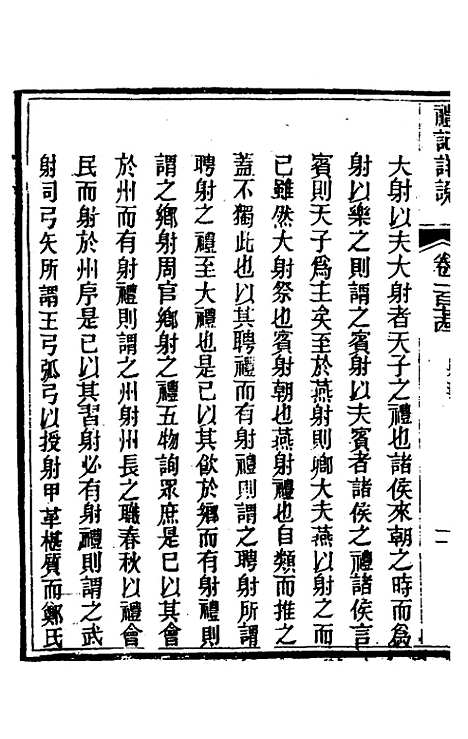 禮記詳說
卷一百
二
大射以夫大射者天子之禮也諸侯來朝之時而爲
射以樂之則謂之賓射以夫賓者諸侯之禮諸侯言
賓則天子爲主矣至於燕射則卿大夫燕以射之而
已雖然大射祭也賓射朝也燕射禮也自類而推之
蓋不獨此也以其聘禮而有射禮則謂之聘射所謂
聘射之禮至大禮也是已以其飲於鄉而有射禮則
謂之鄉射周官鄉射之禮五物詢眾庶是已以其會
於州而有射禮則謂之州射州長之職春秋以禮會
民而射於州序是已以其習射必有射禮則謂之武
射司弓矢所謂王弓弧弓以授射甲革椹質而鄭氏